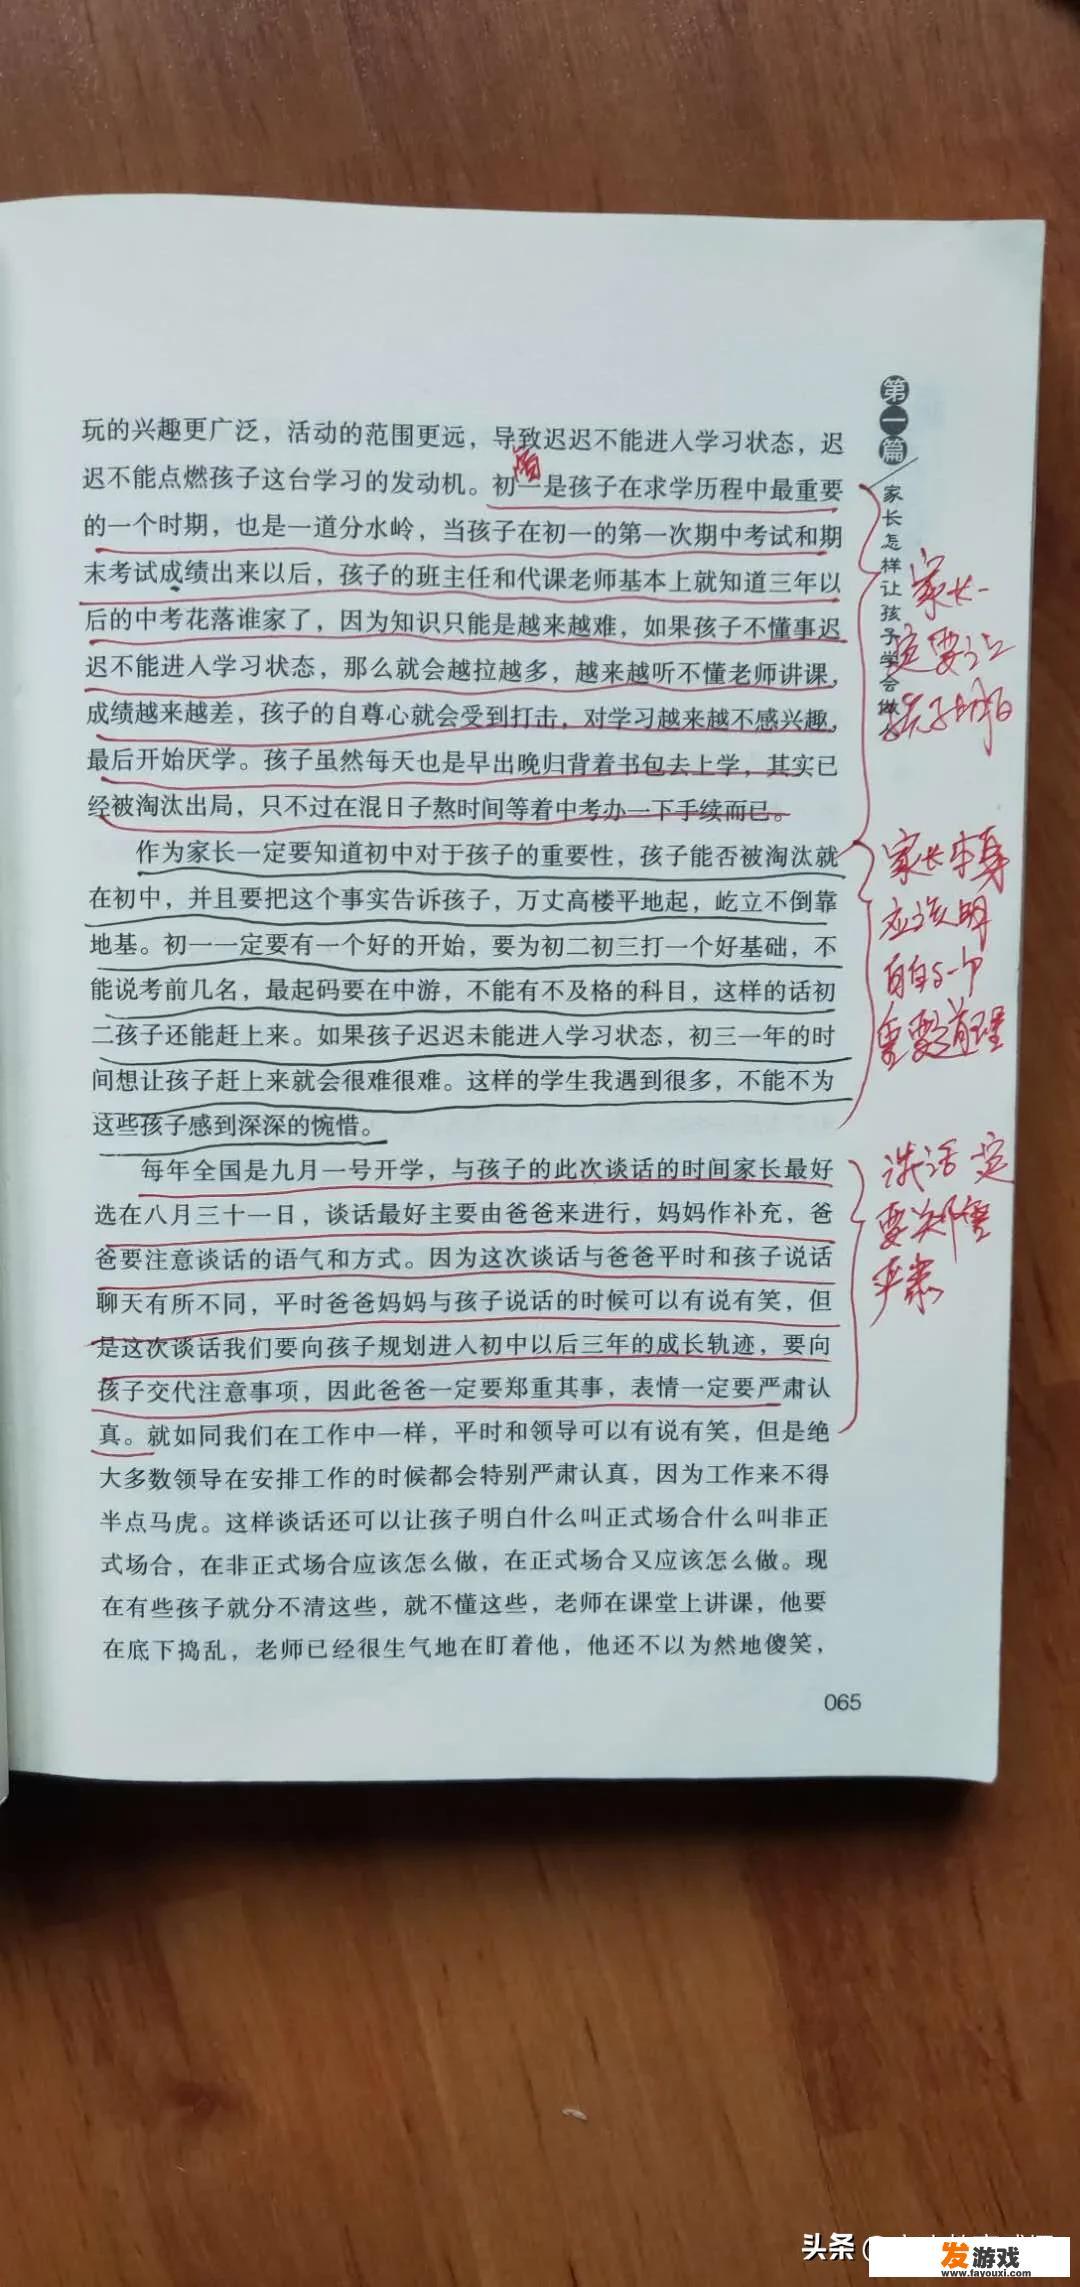 玩的兴趣更广泛，活动的范围更远，导致迟迟不能进入学习状态，迟
迟不能点燃孩子这台学习的发动机。初一是孩子在求学历程中最重要
的一个时期，也是一道分水岭，当孩子在初一的第一次期中考试和期
末考试成绩出来以后，孩子的班主任和代课老师基本上就知道三年以
后的中考花落谁家了，因为知识只能是越来越难，如果孩子不懂事迟
迟不能进入学习状态，那么就会越拉越多，越来越听不懂老师讲课，
成绩越来越差，孩子的自尊心就会受到打击，对学习越来越不感兴趣，
最后开始厌学。孩子虽然每天也是早出晚归背着书包去上学，其实已
经被淘汰出局，只不过在混日子熬时间等着中考办一下手续而已。
作为家长一定要知道初中对于孩子的重要性，孩子能否被淘汰就
在初中，并且要把这个事实告诉孩子，万丈高楼平地起，屹立不倒靠
地基。初一一定要有一个好的开始，要为初二初三打一个好基础，不
能说考前几名，最起码要在中游，不能有不及格的科目，这样的话初
二孩子还能赶上来。如果孩子迟迟未能进入学习状态，初三一年的时
间想让孩子赶上来就会很难很难。这样的学生我遇到很多，不能不为
这些孩子感到深深的惋惜。
每年全国是九月一号开学，与孩子的此次谈话的时间家长最好
选在八月三十一日，谈话最好主要由爸爸来进行，妈妈作补充，爸
爸要注意谈话的语气和方式。因为这次谈话与爸爸平时和孩子说话
聊天有所不同，平时爸爸妈妈与孩子说话的时候可以有说有笑，但
是这次谈话我们要向孩子规划进入初中以后三年的成长轨迹，要向
孩子交代注意事项，因此爸爸一定要郑重其事，表情一定要严肃认
真。就如同我们在工作中一样，平时和领导可以有说有笑，但是绝
大多数领导在安排工作的时候都会特别严肃认真，因为工作来不得
半点马虎。这样谈话还可以让孩子明白什么叫正式场合什么叫非正
式场合，在非正式场合应该怎么做，在正式场合又应该怎么做。现
在有些孩子就分不清这些，就不懂这些，老师在课堂上讲课，他要
在底下捣乱，老师已经很生气地在盯着他，他还不以为然地傻笑，
第一篇
家长怎样让孩子学会做
家长一
定要让
孩子明白
家长本身
应该明
白这一个
重要道理
谈话一定
要郑重
严肃
065
头条
发游戏
www.fayouxi.com